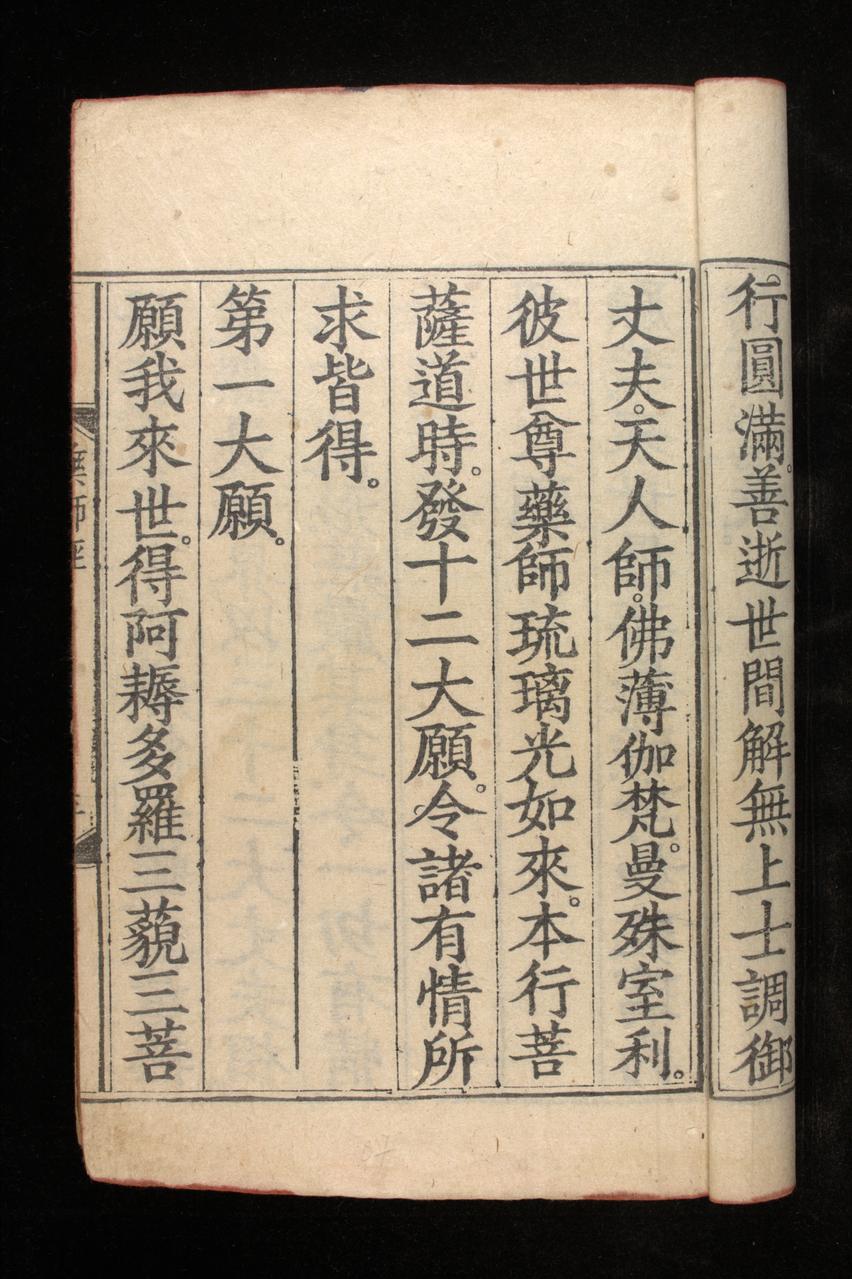 行圓滿。善逝世間解無上士調御
丈夫。天人師。佛薄伽梵。曼殊室利。
彼世尊藥師琉璃光如來。本行菩
薩道時。發十二大願。令諸有情所
求皆得。
第一大願。
願我來世。得阿耨多羅三藐三菩
師